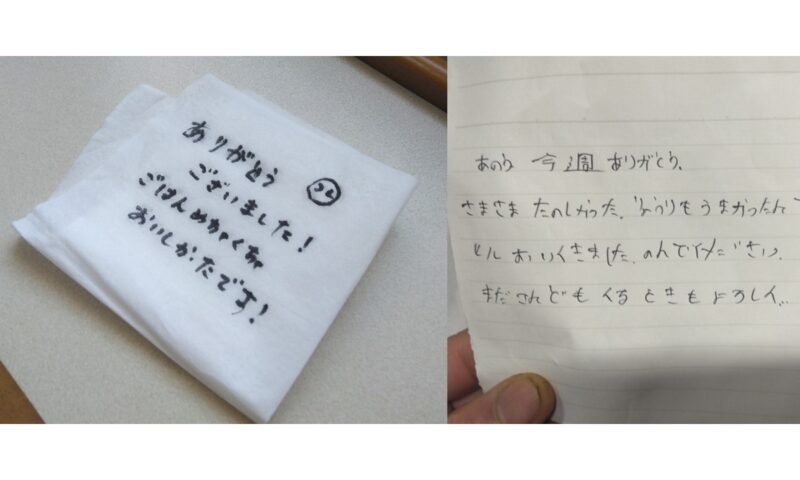 ありがとう
ございました!
ごはんめちゃくちゃ
おいしかたです!
あのう 今週 ありがとう、
さまさま たのしかった、 りょうりもうまかったんで
おいくきました、のんで
まださんどもくるときもよろしく..